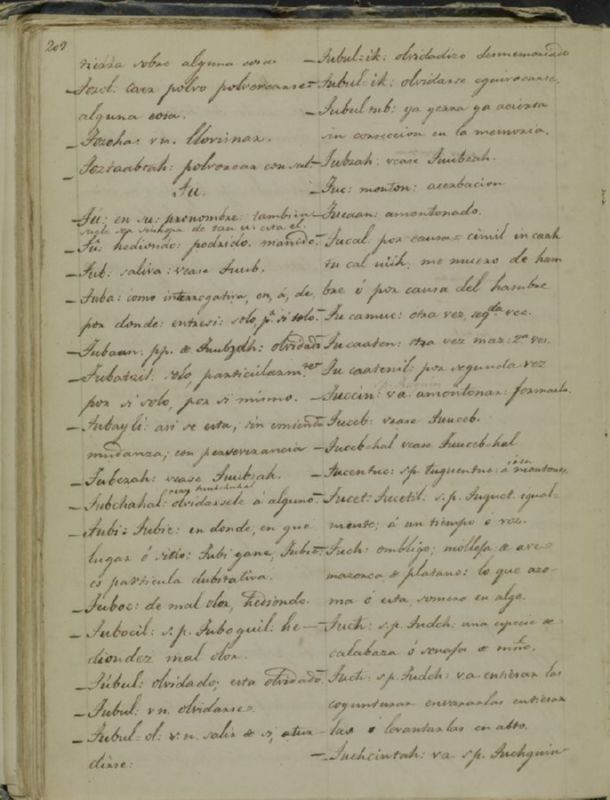 207
tierra sobre alguna cosa
– Tozol: caer polvo polvorearse
alguna cosa.
– Tozoha: vn. llovisnar.
– Toztaabzah: polvorear con sal
Tu.
– Tú: en su: pronombre: tambien
– Tu: hediondo: podrido. manido.
– Tub. saliva: vease Tuub.
– Tuba: como interrogativa, en, á, de,
por donde: entre si: solo, pr. si solo.
– Tubaan: pp. de Tuubzah: olvidado
– Tubatzil: solo, particularmte
por si solo, por si mismo.
– Tubayli: asi se esta, sin emienda
mudanza; con perseverancia
– Tubezah: vease Tuubzah.
– Tubchahal: olvidarsele á alguno
– Tubi: Tubic: en donde, en que
lugar ó sitio: Tubi yane, Tubi
es particula dubitativa.
– Tuboc: de mal olor, hediondo.
– Tubocil: s.p. Tuboquil: he-
diondez mal olor.
– Túbul: olvidado; esta olvidado
– Tubul: vn. olvidarse.
– Tubul-ol: v.n. salir de si, atur-
dirse:
– Tubul-ik: olvidadizo desmemoriado
– Tubul-ik: olvidarse equivocarse,
– Tubul tub: ya yerra ya acierta
sin conseccion en la memoria.
– Tubzah: vease Tuubzah.
– Tuc: monton: acerbacion
– Tucaan: amontonado.
– Tucal por causa: cimil in cah
tu cal uiih. me muero de ham
bre ó por causa del hambre
– Tu camuc: otra vez, segda vez.
– Tu caaten: otra vez mas: 2a vez.
– Tu caatenil: por segunda vez
– Tuccin: va. amontonar: formarlo.
– Tuceb: vease Tuuceb.
– Tuceb-hal vease Tuuceb-hal
– Tucentuc: s.p. Tuquentuc: á montones,
– Tucet: Tucetil: s.p. Tuquet. igual-
mente; á un tiempo ó vez.
– Tuch: ombligo; molleja de ave
mazorca de platano: lo que aso-
ma ó esta somero en algo.
– Tuch: s.p. Tudch: una especie de
calabaza ó sonaja de niño.
– Tuch: s.p. Tudch: va. enterar las
coyunturas envararlas enterar
las ó levantarlas en alto.
– Tuchcintah: va s.p. Tuchquin